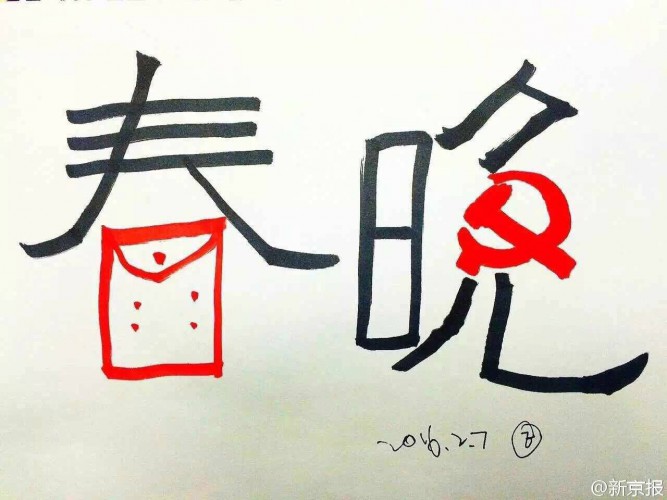 春晚
2016.2.7
@新京报